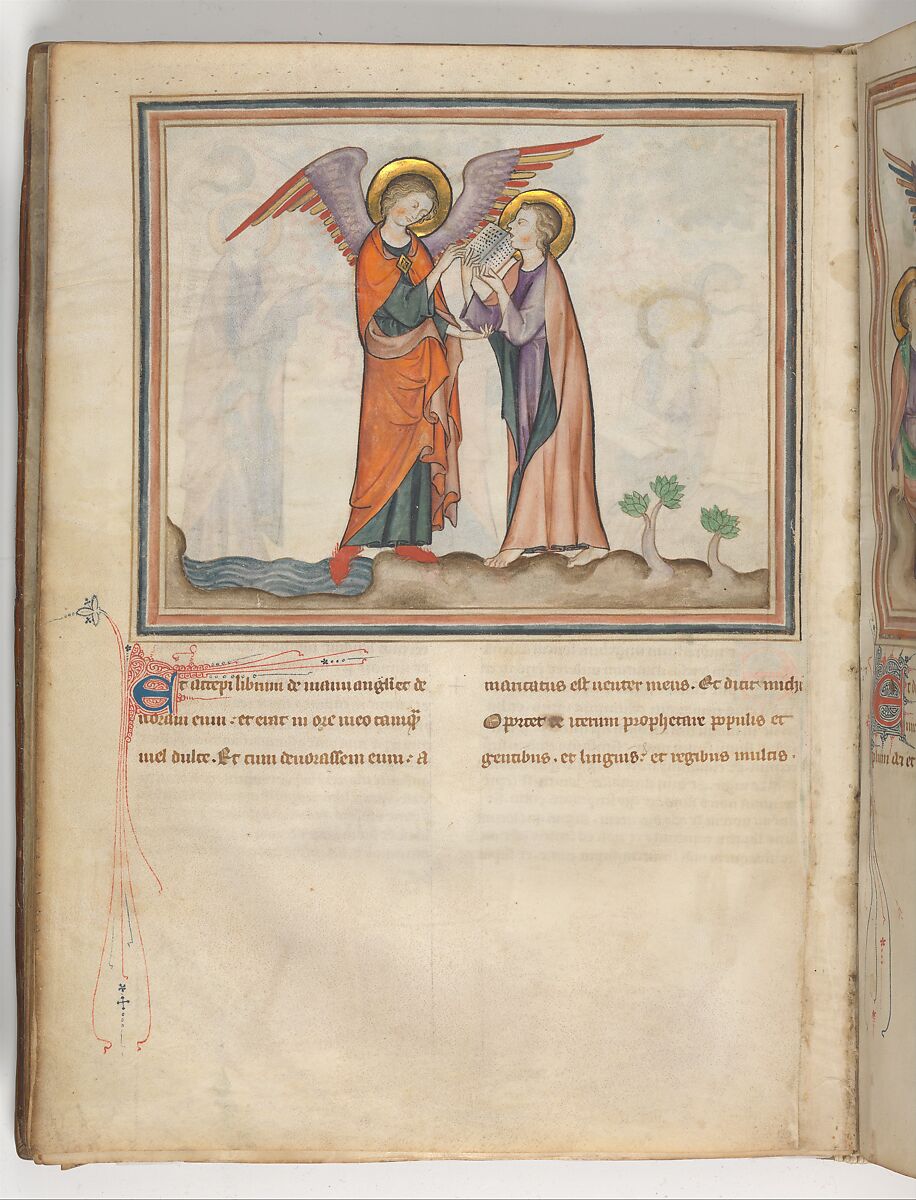 Et accepi librum de manu angli et de
uoraui eum : et erat in ore meo tamqͣ
mel dulce. Et cum deuorassem eum : a
maricatus est uenter meus. Et dicit michi
Oportet te iterum prophetare populis et
gentibus. et linguis : et regibus multis.